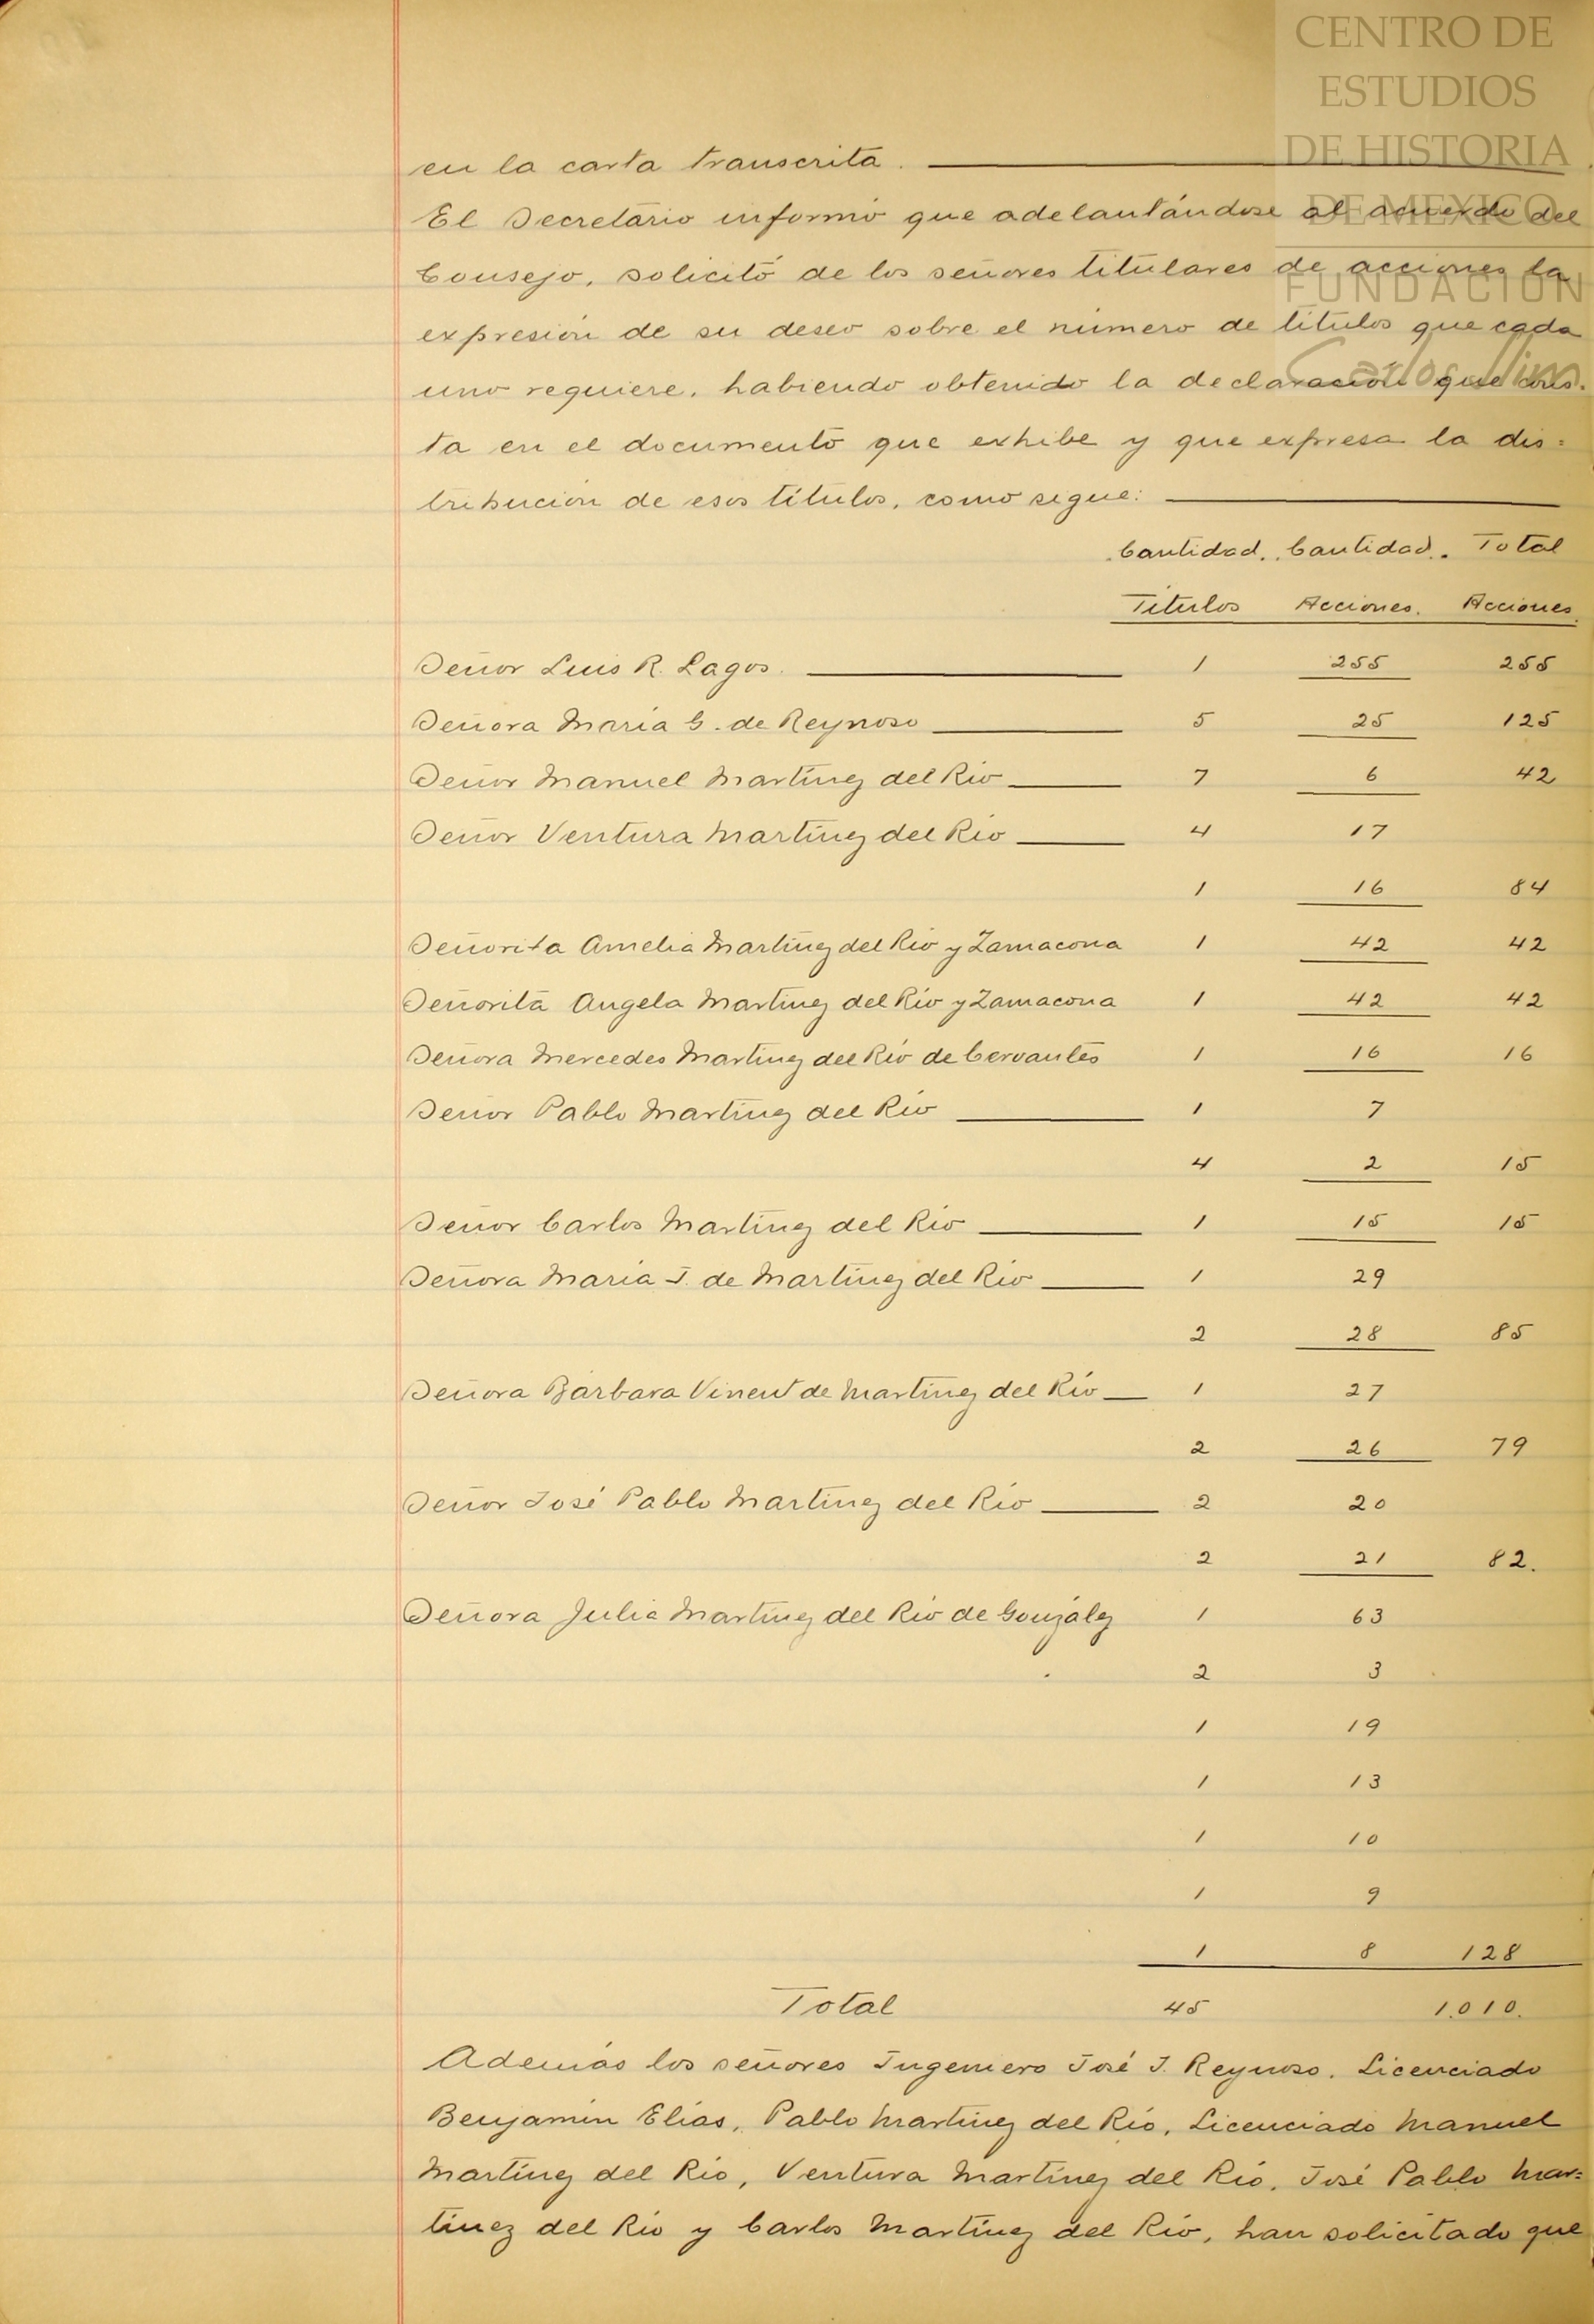 CENTRO DE
ESTUDIOS
DE HISTORIA
DE MEXICO
FUNDACION
Carlos Slim
en la carta transcrita.
El Secretario informó que adelantándose al acuerdo del
Consejo, solicitó de los señores titulares de acciones la
expresión de su deseo sobre el número de títulos que cada
uno requiere, habiendo obtenido la declaración que cons-
ta en el documento que exhibe y que expresa la dis=
tribución de esos títulos, como sigue:
Cantidad. Cantidad. Total
Títulos Acciones. Acciones.
Señor Luis R. Lagos. 1 255 255
Señora María G. de Reynoso 5 25 125
Señor Manuel Martínez del Río 7 6 42
Señor Ventura Martínez del Río 4 17
1 16 84
Señorita Amelia Martínez del Río y Zamacona 1 42 42
Señorita Angela Martínez del Río y Zamacona 1 42 42
Señora Mercedes Martínez del Río de Cervantes 1 16 16
Señor Pablo Martínez del Río 1 7
4 2 15
Señor Carlos Martínez del Río 1 15 15
Señora María J. de Martínez del Río 1 29
2 28 85
Señora Bárbara Vinent de Martínez del Río 1 27
2 26 79
Señor José Pablo Martínez del Río 2 20
2 21 82.
Señora Julia Martínez del Río de González 1 63
2 3
1 19
1 13
1 10
1 9
1 8 128
Total 45 1.010.
Además los señores Ingeniero José J. Reynoso, Licenciado
Benjamín Elías, Pablo Martínez del Río, Licenciado Manuel
Martínez del Río, Ventura Martínez del Río, José Pablo Mar=
tínez del Río y Carlos Martínez del Río, han solicitado que